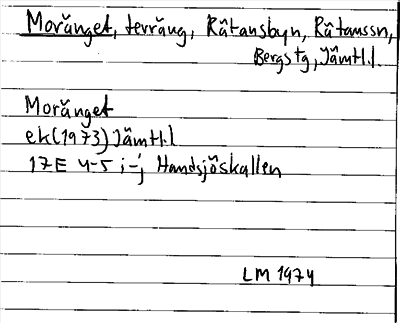 Moränget, terräng, Rätansbyn, Rätanssn,
Bergs tg, Jämtl.l.
Moränget
ek (1973) Jämtl.l
17E 4-5 i-j Handsjöskallen
LM 1974